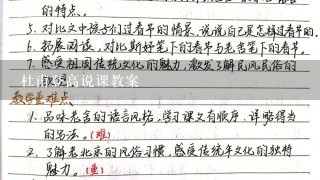 的特点。
5. 对比文中孩子们过春节的情景,说说自己是怎样过春节的。
6. 拓展阅读,对比斯好笔下的春节与老舍笔下的春节。
7. 感受祖国传统文化的魅力,激发了解民风民俗的
杜甫登高说课教案
教学重难点
1. 品味老舍的语言风格,学习课文有顺序、详略得当
的写法。(难)
2. 了解老北京的风俗习惯,感受传统年文化的独特
魅力。(重)